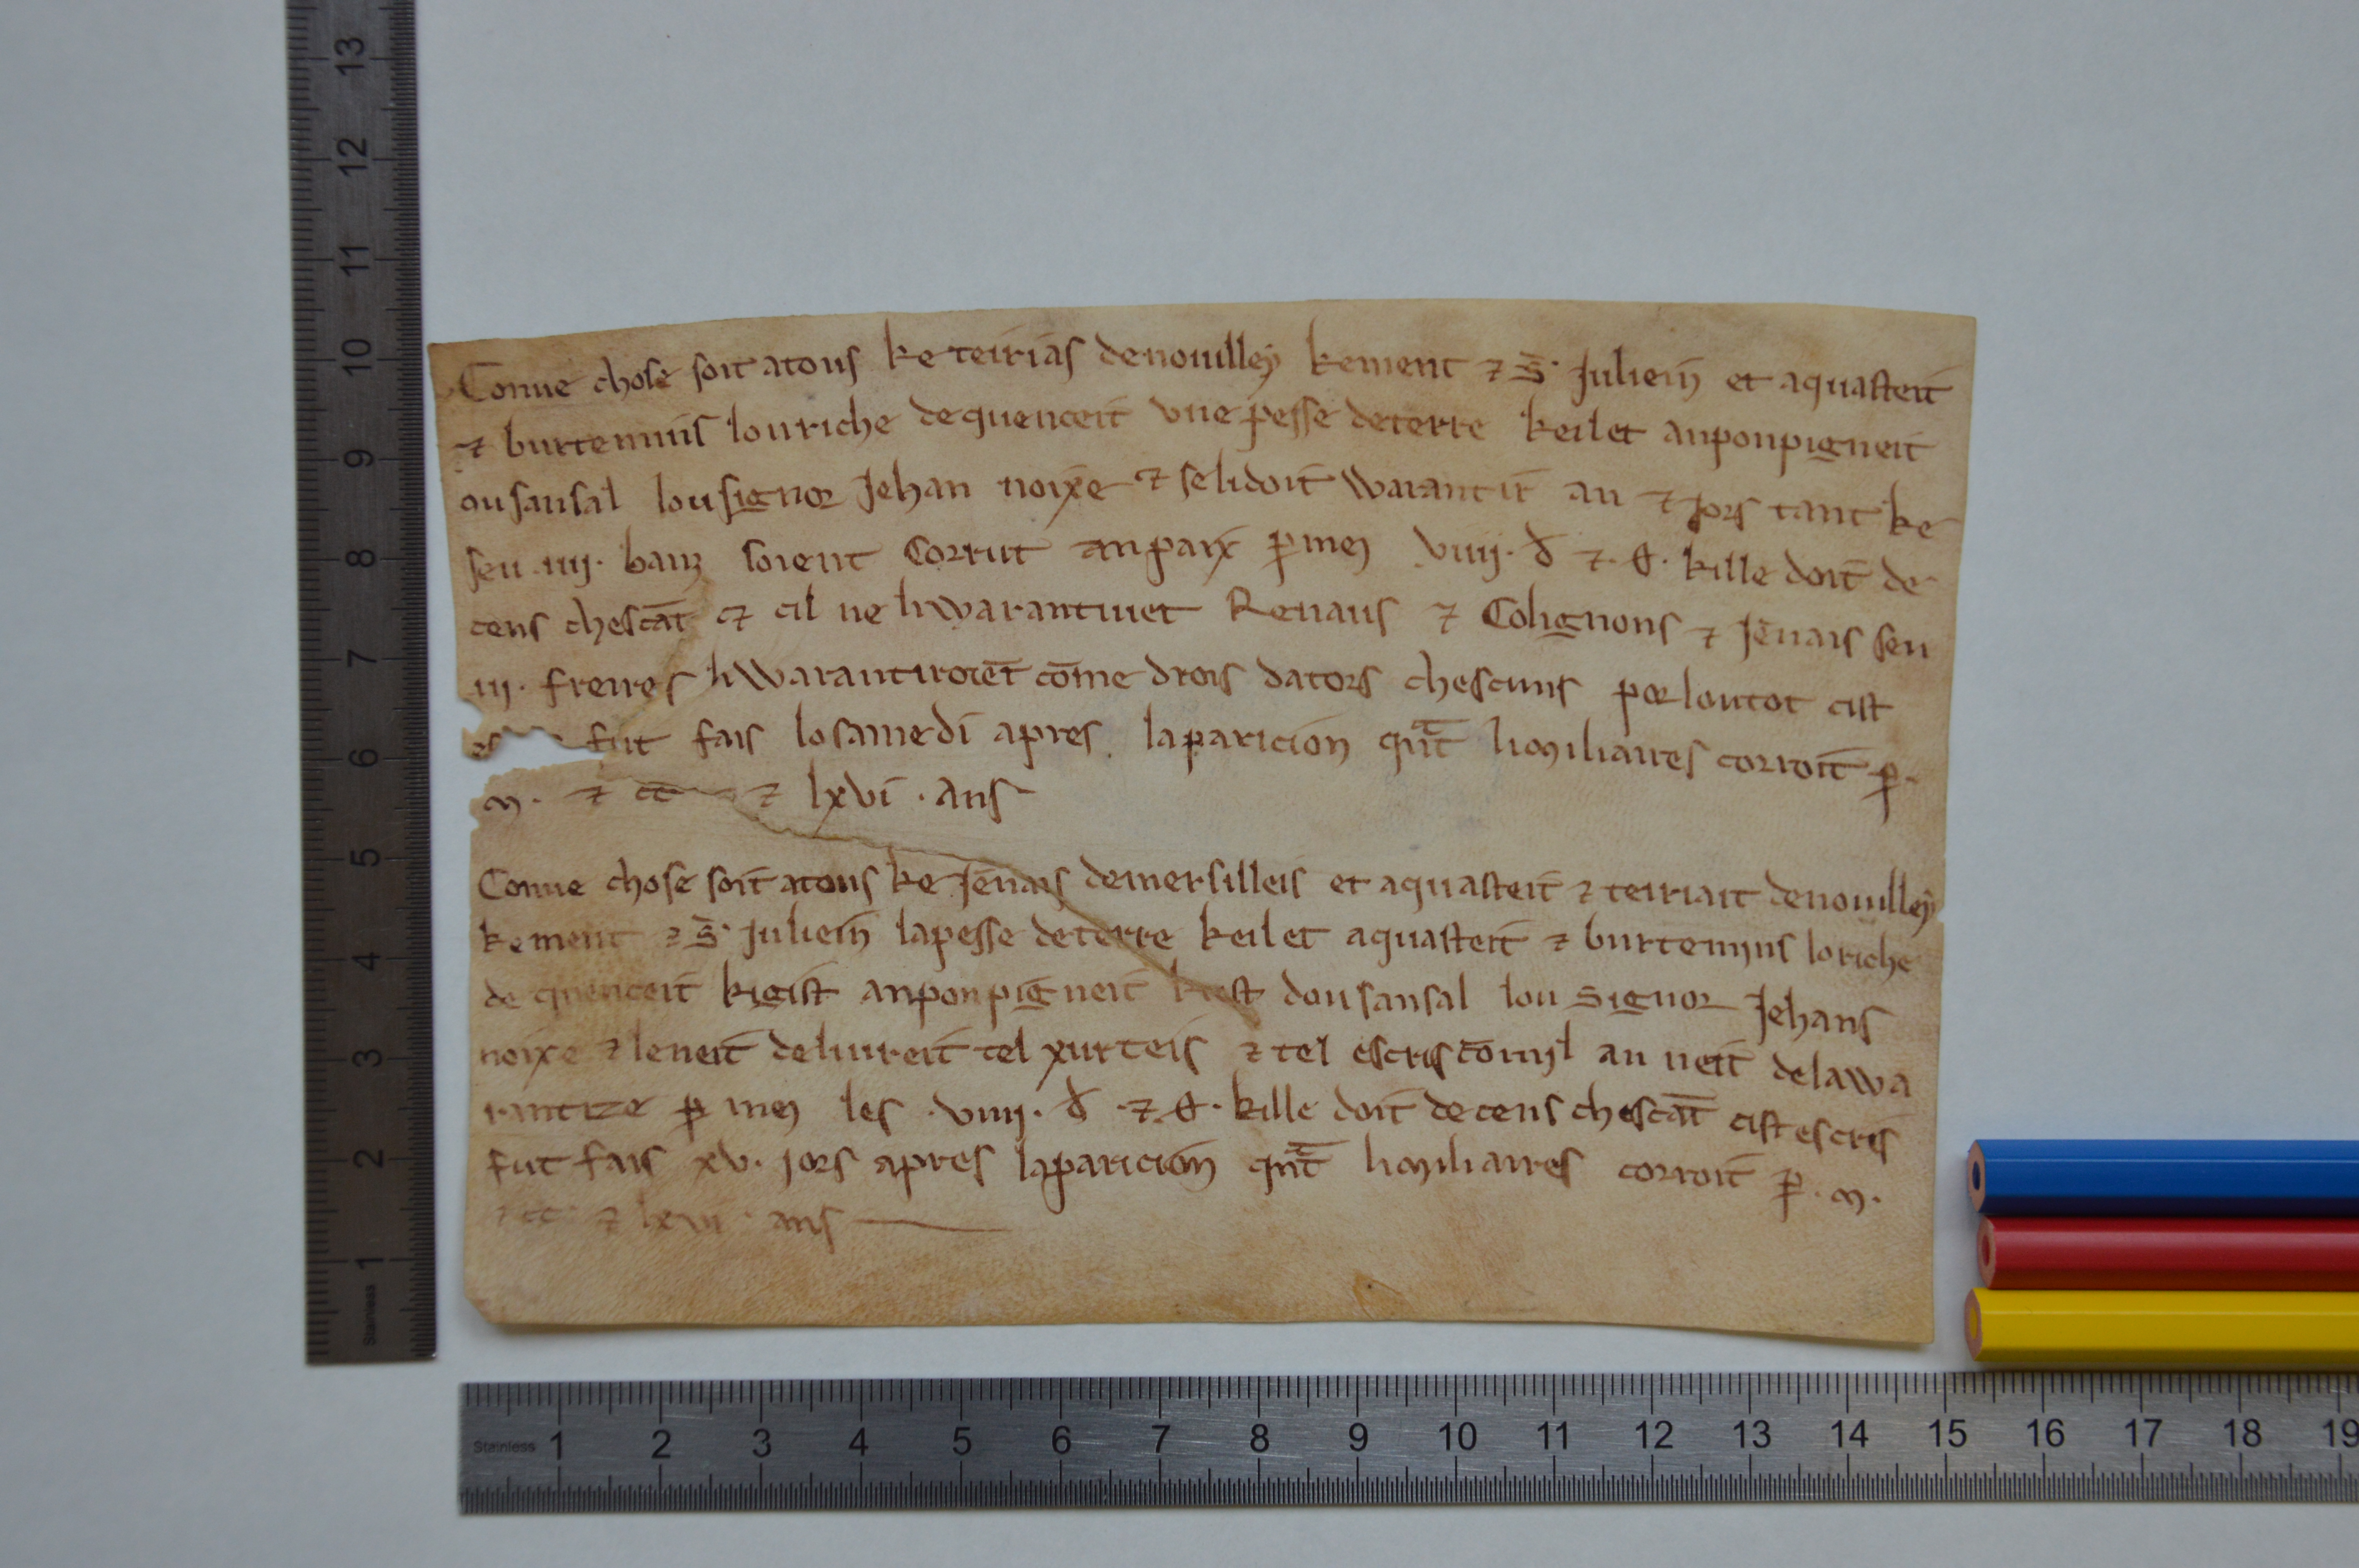 Conue chose soit atous ke teirias denouilley kement ⁊ S̄· Juliein et aquasteit
⁊ burtemins louriche dequenceit vne pesse deterre keilet anponpigneit
ousansal lou signor Jehan noixe ⁊ selidoit warantir an ⁊ jors tant ke
seu .iiij. banz soient Corrut anpaix ꝑ mey viiij. d̄ ⁊ . kille doit de
cens chescāt ⁊ cil ne liwarantiuet Renaus ⁊ Colignons ⁊ Jēnais seu
iij. freires li Warantiroiēt cōme drois dators chescuns por loutot cist
fut fais lo samedi apres laparicion qn̄t li miliaires corroit ꝑ.
m. ⁊ cc ⁊ lxvi . ans
Conue chose soit atous ke Jēnais demersilleis et aquasteit ⁊ teiriait denouilley
kement ⁊ S̄· Juliein lapesse deterre keilet aquasteit ⁊ burtemins loriche
de quenceit kigist anponpigneit kest dousansal lou signor Jehans
noixe ⁊ leneit deliureit tel xurteis ⁊ tel escris cōmil an neit delawa
rantize ꝑ mey les .viiij. d̄ .⁊ . kille doit decens chescāt cist escris
fut fais xv. jors apres laparicion qn̄t li miliaires corroit ꝑ .m.
⁊ cc ⁊ lxvi . ans
1 2 3 4 5 6 7 8 9 10 11 12 13
Stainless
Stainless 1 2 3 4 5 6 7 8 9 10 11 12 13 14 15 16 17 18 19